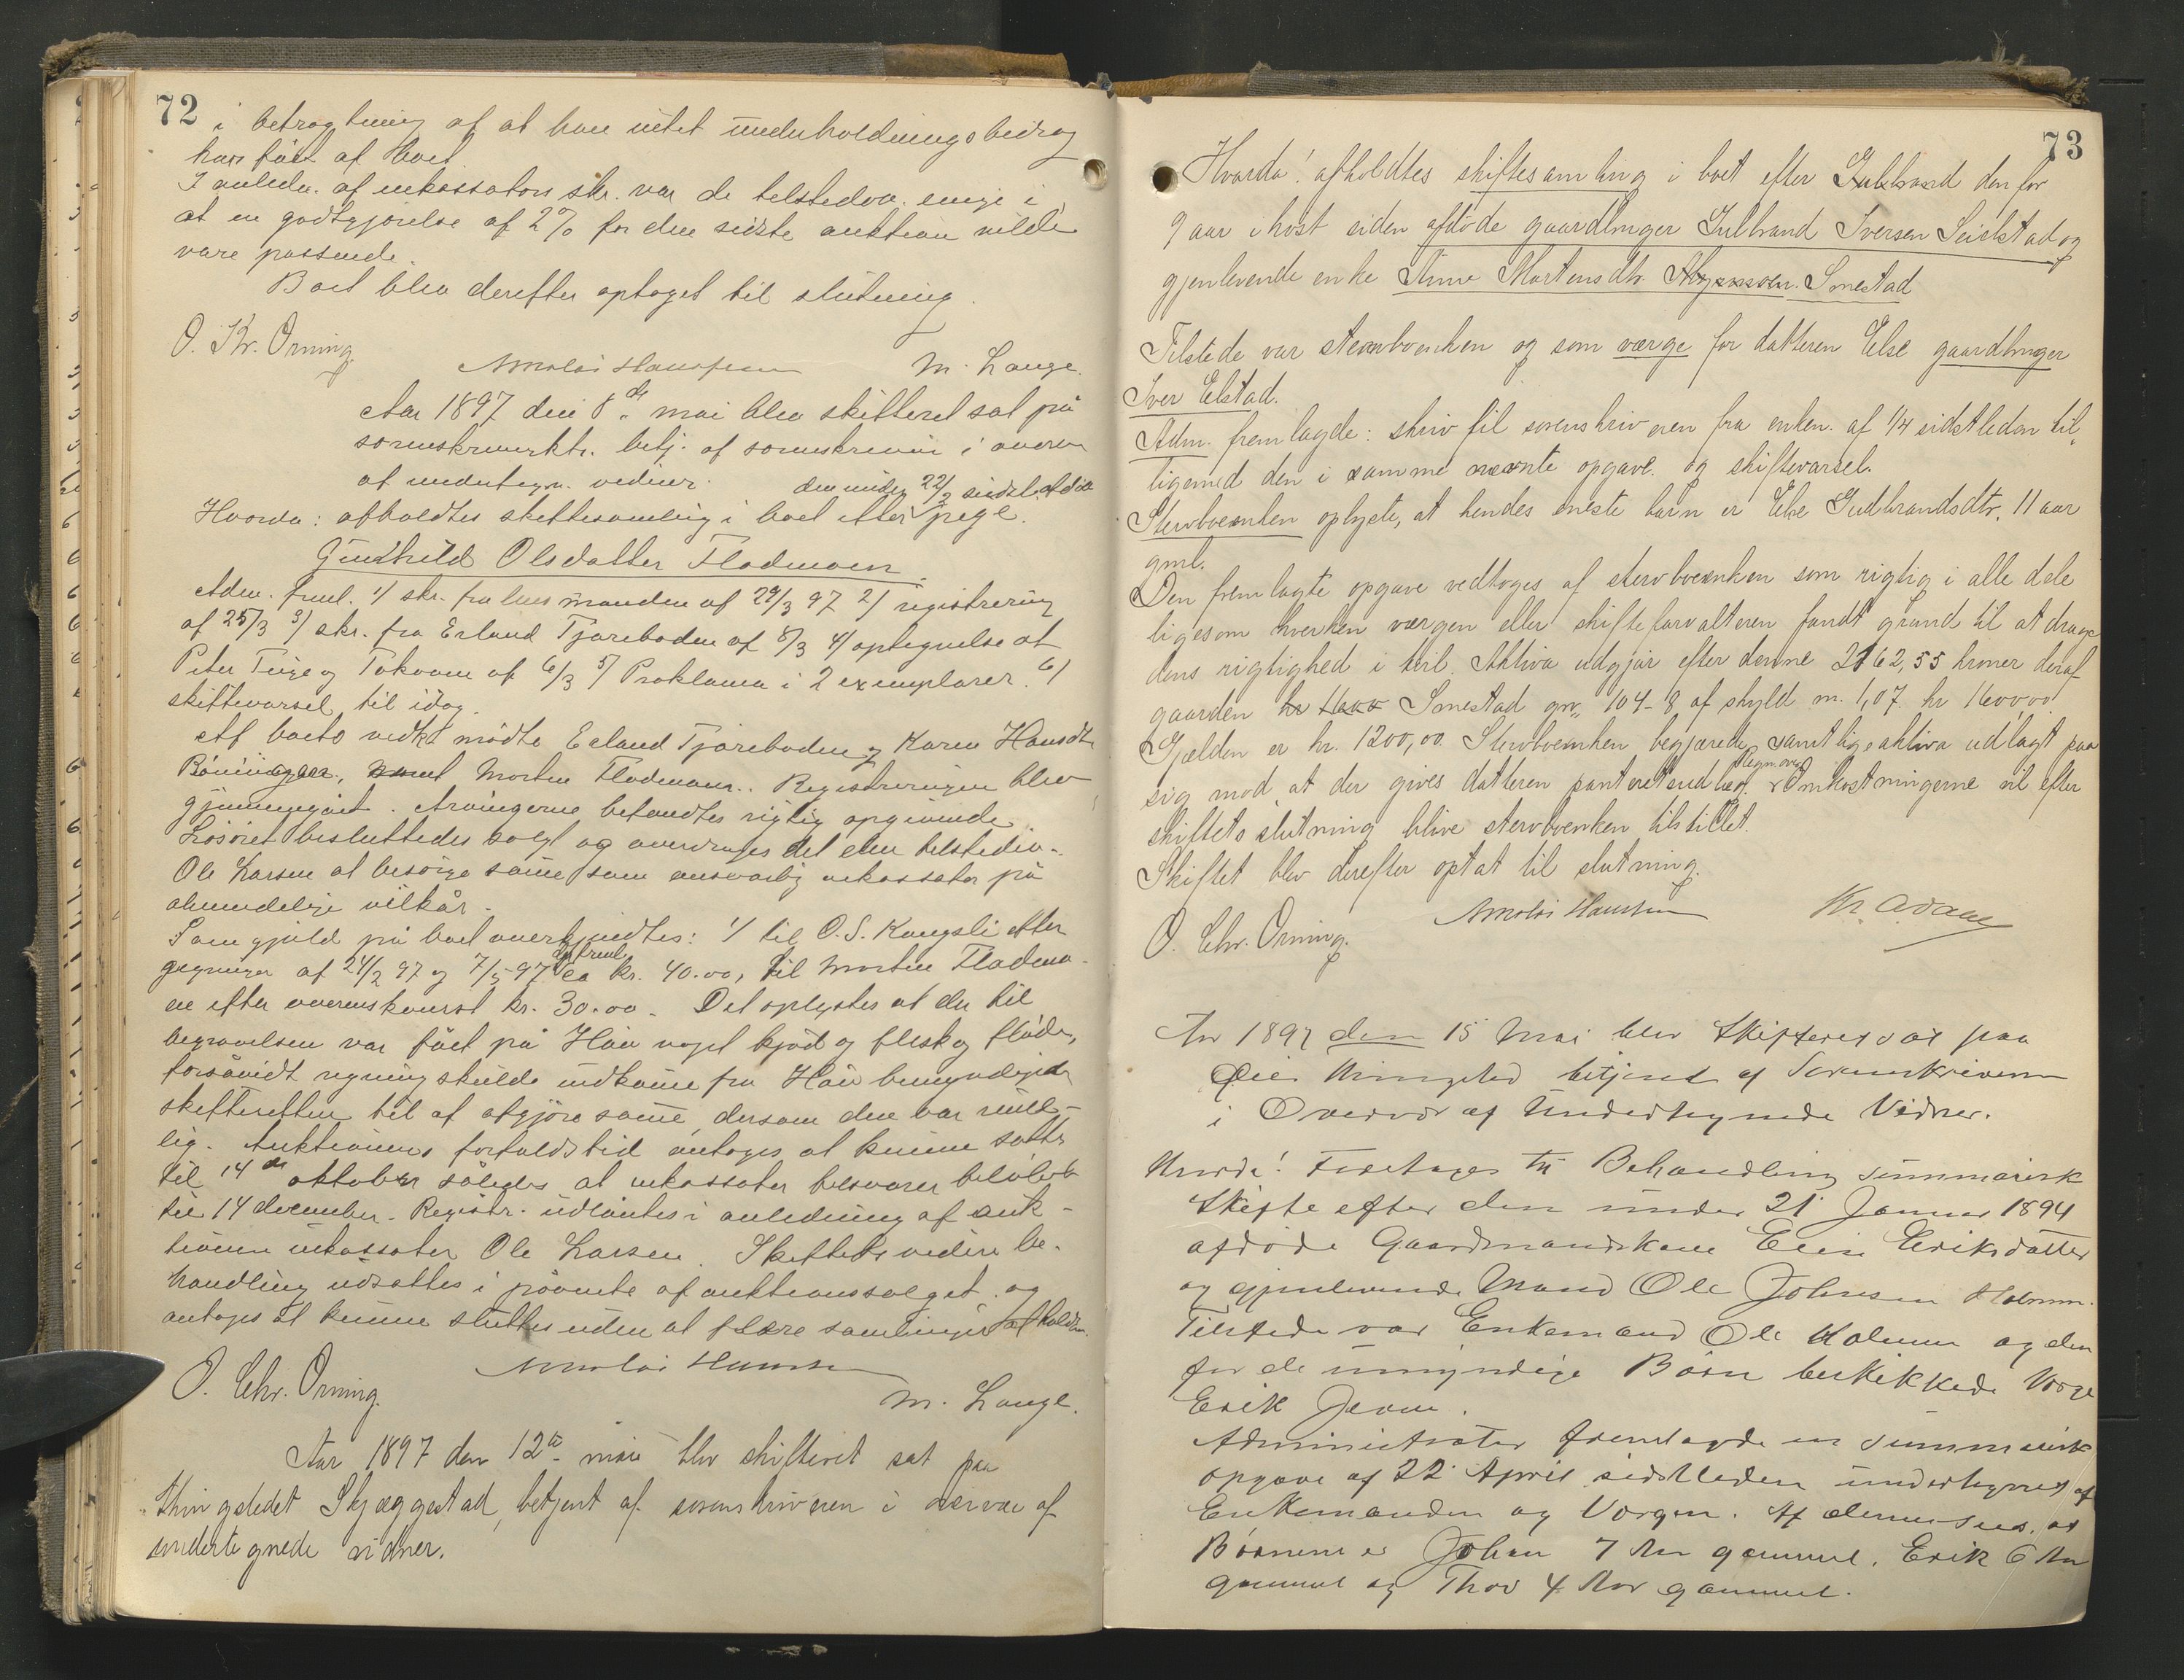 72
i betragtning af at hun intet underholdningsbidrag
har fået af boet.
I anledn. af inkassators skr. var de tilstedev. enige i,
at en godtgjörelse af 2% for den sidste auktion vilde
være passende.
Boet blev derefter optaget til slutning.
O. Kr. Orning
Nicolai Hanssen M. Lange.
Aar 1897 den 8de mai blev skifteret sat på
sorenskriverktr. betj. af sorenskriveren i overv.
af undertegn. vidner.
Hvorda: afholdtes skiftesamling i boet efter den under 22/2 sidstl. afdöde pige.
Gunhild Olsdatter Fladmoen.
Adm. freml. 1/ skr. fra lensmanden af 29/3 97 2/ registrering
af 25/3 3/ skr. fra Erland Tjæreboden af 8/3 4/ optegnelse af
Peter Tuge og Tokvam af 6/3 5/ Proklama i 2 exemplarer. 6/
skiftevarsel til idag.
Af boets vedk. mödte Erland Tjæreboden og Karen Hansdtr.
Morten Fladmoen. Registreringen blev
gjennemgået. Arvingerne befandtes rigtig opgivende.
Lösöret besluttedes solgt og overdroges det den tilstedev.
Ole Larsen at besörge samme som ansvarlig inkassator på
almindelige vilkår.
Som gjæld på boet anerkjendtes: 1/ til O.S. Kongsli efter
regninger af 24/2 97 og 7/5 97 kr. 40.00, til Morten Fladmo-
en efter overenskomst kr. 30.00. Det oplystes at der til
begravelsen var fået på Hov noget kjöd og flesk og flöde,
forsåvidt regning skulde indkomme fra Hov bemyndigedes
skifteretten til at afgjöre samme, dersom den var rime-
lig. Auktionens forfaldstid antoges at kunne sættes
til 14de oktober således at inkassator tilsvarer belöbet
til 14 december. Registr. udlåntes i anledning af auk-
tionen inkassator Ole Larsen. Skiftets videre be-
handling udsattes i påvente af auktionssalget og
antages at kunne sluttes uden at flere samlinger afholdes.
O. Chr. Orning. Nicolai Hanssen
M. Lange.
Aar 1897 den 12te mai blev skifteret sat paa
thingstedet Skjæggestad, betjent af sorenskriveren i overvær af
undertegnede vidner.
73
Hvorda! afholdtes skiftesamling i boet efter Gulbrand den for
9 aar i höst siden afdöde gaardbruger Gulbrand Iversen Seielstad og
gjenlevende enke Anne Martensdtr. Smestad
Tilstede var stervboenken og som værge for datteren Else gaardbruger
Iver Elstad.
Adm. fremlagde: skriv til sorenskriveren fra enken af 1/4 sidstleden til-
ligemed den i samme nævnte opgave og skiftevarsel.
Stervboenken oplyste, at hendes eneste barn er Else Gudbrandsdtr, 11 aar
gml.
Den fremlagte opgave vedtoges af stervboenken som rigtig i alle dele
ligesom hverken værgen eller skifteforvalteren fandt grund til at drage
dens rigtighed i tvil. Aktiva udgjör efter denne 2162,55 kroner deraf
gaarden kr 1600 Smestad gnr. 104-8 af skyld m. 1,07. kr 1600,00.
Gjælden er kr. 1200,00. Stervboenken begjærede samtlige aktiva udlagt paa
sig mod, at der gives datteren panteretsudlæg. Omkostningerne vil efter
skiftets slutning blive stervboenken tilstillet.
Skiftet blev derefter optat til slutning.
O. Chr. Orning. Nicolai Hanssen
Aar 1897 den 15 Mai blev Skifteret sat paa
Öier Thingsted betjent af Sorenskriveren
i Overvær af Undertegnede Vidner.
Hvorda! Foretoges til Behandling summarisk
Skifte efter den under 21 Januar 1894
afdöde Gaardmandskone Eline Eriksdatter
og gjenlevende Mand Ole Johnsen Holmen.
Tilstede var Enkemand Ole Holmen og den
for de umyndige Börn beskikkede Værge
Erik Jevne.
Administrator fremlagde en summarisk
opgave af 22 April sidstleden undertegnet af
Enkemanden og Værgen. Af denne sees, at
Börnene er Johan 7 Aar gammel, Erik 6 Aar
gammel og Thor 4 Aar gammel.